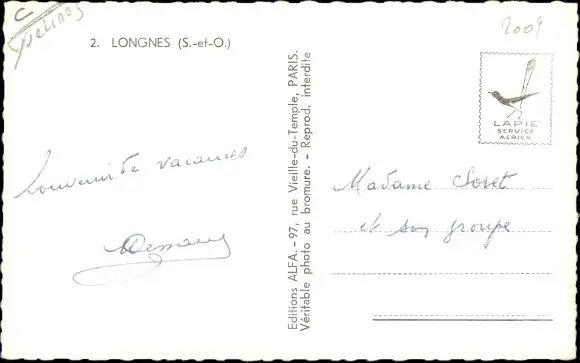 C
Yvelines
2. LONGNES (S.-et-O.)
2009
LAPIE
SERVICE
AERIEN
Souvenir de vacances
Editions ALFA. - 97, rue Vieille-du-Temple, PARIS.
Véritable photo au bromure. - Reprod. interdite
Madame Soret
et son groupe